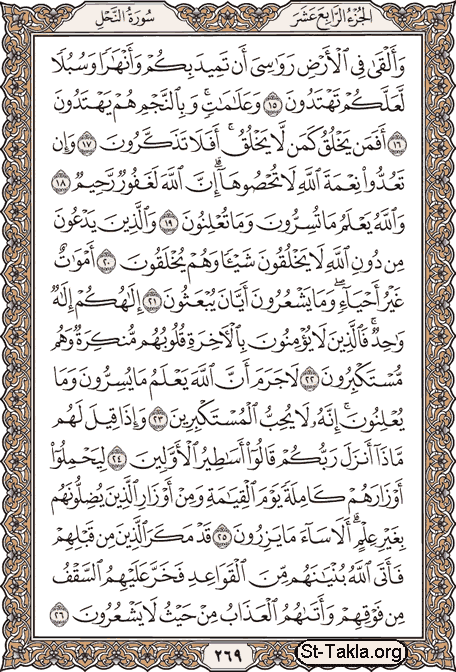 الجزء الرابع عشر سورة النحل
وَأَلْقَىٰ فِي ٱلْأَرْضِ رَوَٰسِيَ أَن تَمِيدَ بِكُمْ وَأَنْهَٰرًا وَسُبُلًا
لَّعَلَّكُمْ تَهْتَدُونَ ١٥ وَعَلَٰمَٰتٍ ۚ وَبِٱلنَّجْمِ هُمْ يَهْتَدُونَ
١٦ أَفَمَن يَخْلُقُ كَمَن لَّا يَخْلُقُ ۗ أَفَلَا تَذَكَّرُونَ ١٧ وَإِن
تَعُدُّوا۟ نِعْمَةَ ٱللَّهِ لَا تُحْصُوهَآ ۗ إِنَّ ٱللَّهَ لَغَفُورٌ رَّحِيمٌ ١٨
وَٱللَّهُ يَعْلَمُ مَا تُسِرُّونَ وَمَا تُعْلِنُونَ ١٩ وَٱلَّذِينَ يَدْعُونَ
مِن دُونِ ٱللَّهِ لَا يَخْلُقُونَ شَيْـًٔا وَهُمْ يُخْلَقُونَ ٢٠ أَمْوَٰتٌ
غَيْرُ أَحْيَآءٍ ۖ وَمَا يَشْعُرُونَ أَيَّانَ يُبْعَثُونَ ٢١ إِلَٰهُكُمْ إِلَٰهٌ
وَٰحِدٌ ۚ فَٱلَّذِينَ لَا يُؤْمِنُونَ بِٱلْـَٔاخِرَةِ قُلُوبُهُم مُّنكِرَةٌ وَهُم
مُّسْتَكْبِرُونَ ٢٢ لَا جَرَمَ أَنَّ ٱللَّهَ يَعْلَمُ مَا يُسِرُّونَ وَمَا
يُعْلِنُونَ ۚ إِنَّهُۥ لَا يُحِبُّ ٱلْمُسْتَكْبِرِينَ ٢٣ وَإِذَا قِيلَ لَهُم
مَّاذَآ أَنزَلَ رَبُّكُمْ ۙ قَالُوٓا۟ أَسَٰطِيرُ ٱلْأَوَّلِينَ ٢٤ لِيَحْمِلُوٓا۟
أَوْزَارَهُمْ كَامِلَةً يَوْمَ ٱلْقِيَٰمَةِ ۙ وَمِنْ أَوْزَارِ ٱلَّذِينَ يُضِلُّونَهُم
بِغَيْرِ عِلْمٍ ۗ أَلَا سَآءَ مَا يَزِرُونَ ٢٥ قَدْ مَكَرَ ٱلَّذِينَ مِن قَبْلِهِمْ
فَأَتَى ٱللَّهُ بُنْيَٰنَهُم مِّنَ ٱلْقَوَاعِدِ فَخَرَّ عَلَيْهِمُ ٱلسَّقْفُ
مِن فَوْقِهِمْ وَأَتَىٰهُمُ ٱلْعَذَابُ مِنْ حَيْثُ لَا يَشْعُرُونَ ٢٦
٢٦٩
St-Takla.org